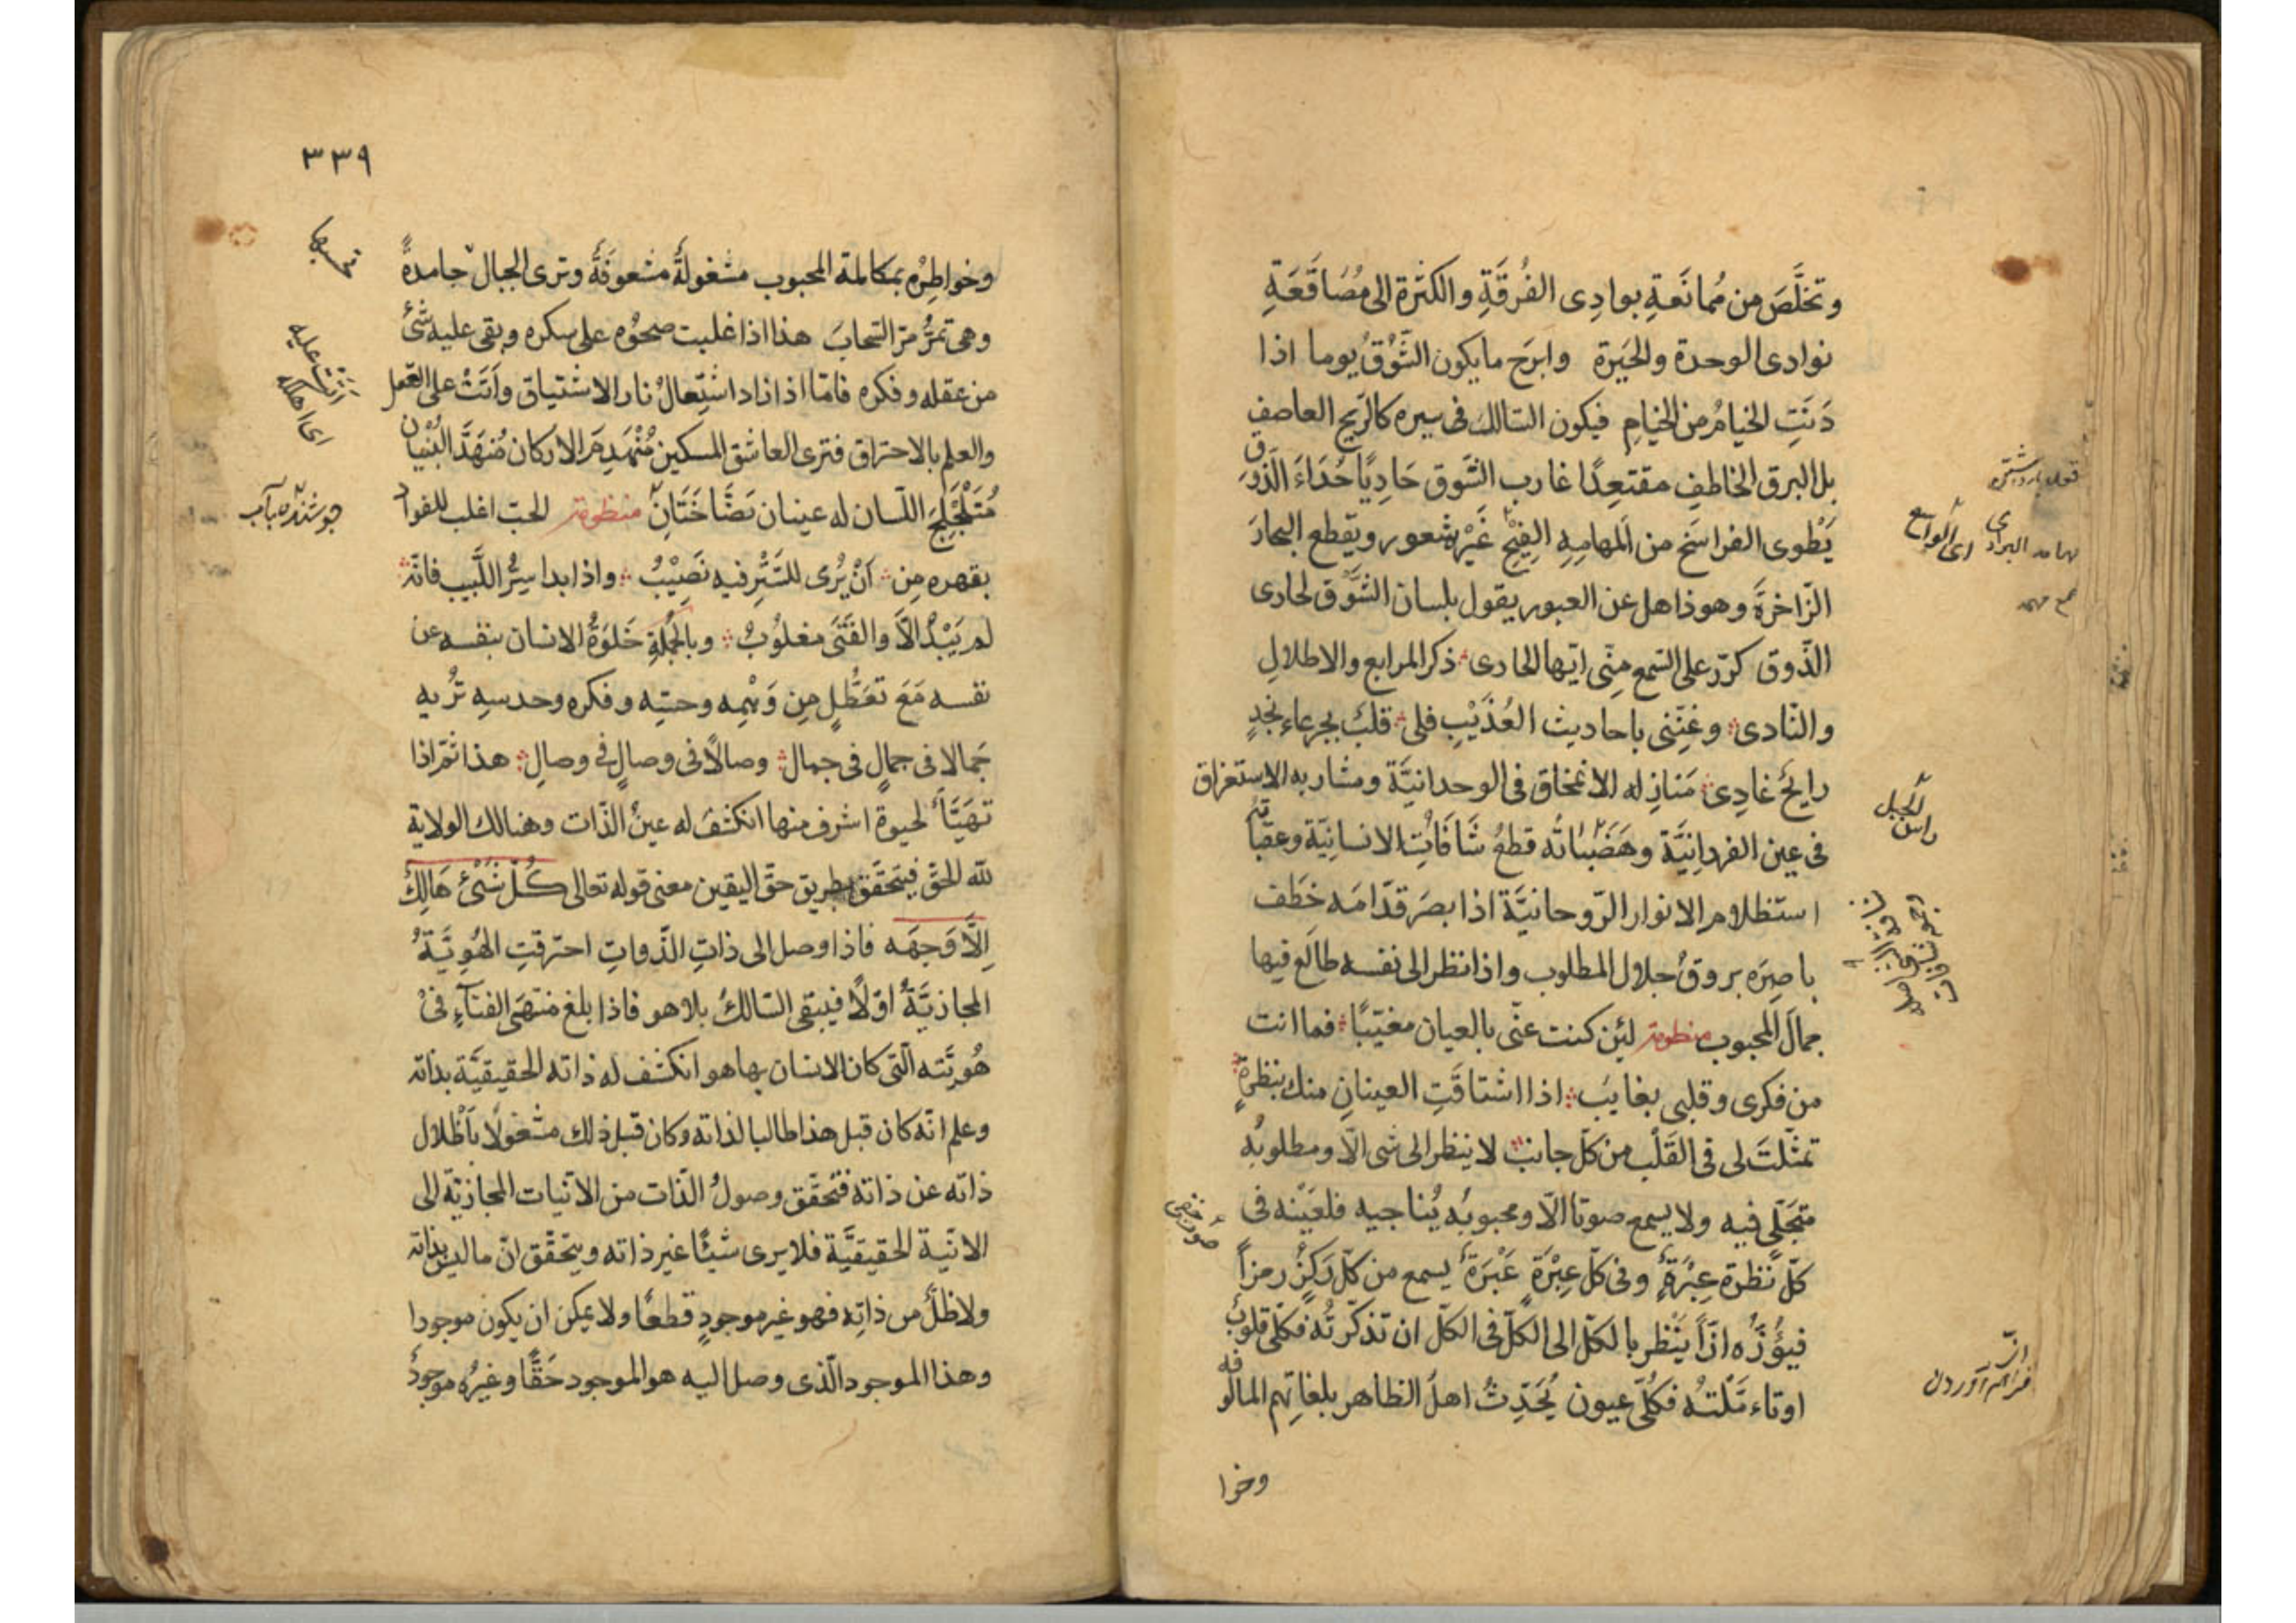 وتخلَّصَ من مُمانَعةِ بوادِى الفُرقَةِ والكثرة الى مُصَاقَعَةِ
نوادى الوحدة والحَيَرة وابرَح ما يكون الشَّوْقُ يوما اذا
دَنَتِ الخيامُ من الخيامِ فيكون السّالك فى سيره كالرّيح العاصفِ
بل البرق الخاطفِ مقتعِدًا غارب الشَّوق حَادِيًا حُدَاءَ الذَّوْقِ
يَطْوِى الفراسَخ من المهامِهِ الفِيْحِ غَيْرَ شعور ويقطع البحارَ
الزّاخرَةَ وهو ذاهل عن العبور يقول بلسان الشَّوق لحادى
الذّوق كرّر على السّمع منّى ايّها الحادى ذكر المرابع والاطلالِ
والنّادى وغنِّنى باحاديث العُذَيْبِ فلى قلبٌ بجرعاءِ نجدٍ
رايحٌ غادِى مَنازِله الانمحاق فى الوحدانيَّة ومشاربه الاستغراق
فى عين الفردانِيَّة وهَضَباتُه قطعُ شَافَاتِ الانسانِيّة وعقباتُه
استظلام الانوار الرّوحانيَّة اذا بصَرَ قدّامَه خَطَف
باصِرَه بروقُ جلال المطلوب واذا نظر الى نفسه طالَع فيها
جمالَ المحبوب منظومة لئن كنت عنّى بالعيان مغيّبًا فما انت
من فكرى وقلبى بغايبٍ اذا اشتاقَتِ العينانِ منك بنظرةٍ
تمثّلتَ لى فى القَلْب من كلّ جانبٍ لا ينظر الى شى الّا ومطلوبُه
متجَلّى فيه ولا يسمع صوتا الّا ومحبوبُه يُناجيه فلعَيْنه فى
كلّ نَظرة عِبْرَةٌ وفى كلّ عِبْرَةٍ عَبْرَةٌ يسمع من كلّ رَكِزٍ رمزاً
فيؤُزُّه ازّاً ينْظر بالكلّ الى الكلّ فى الكلّ ان تذكّرتُه فكلّى قلوبٌ
او تاءمّلتُه فكلّى عيون يُحَدِّثُ اهلَ الظاهر بلغاتِهم المالوفه
وخوا
راس الجبل
صوت خفى
فراهم آوردن
٣٣٩
وخواطِرُه بمكالمة المحبوب مشغولةٌ مشعوفَةٌ وترى الجبال جامدةً
وهى تمرُّ مرّ السّحابَ هذا اذا غلبت صحوُه على سكره وبقى عليه شئ
من عقله وفكره فامّا اذا زاد اشتِعالُ نار الاشتياق واَتَتْ على العقل
والعلم بالاحتراق فترى العاشق المسكين مُنْهَدِمَ الاركان مُنهَدَّ البُنْيان
مُتَلَجْلِجَ اللّسان له عينان نَضَّاخَتَانِ منظومة الحبّ اغلب للفواد
بقهره مِن اَنْ يُرى للسَّتْرِ فيه نَصِيْبُ واذا بدا سِرُّ اللَّبيب فانّه
لم يَبْدُ الاّ والفَتَى مغلُوبُ وبالجُملةِ خَلوَةُ الانسان بنفسه عن
نفسه مَعَ تعَطُّلٍ مِن وَهْمِه وحسّه وفكره وحدسِه تُريه
جَمالا فى جمالٍ فى جمال وصالًا فى وصالٍ فى وصالِ هذا ثمّ اذا
تهَيَّأَ لحيوة اشرف منها انكشفَ له عينُ الذّات وهنالك الولاية
للّه الحقّ فيتحقّق بطريق حقّ اليقين معنى قوله تعالى كُلّ شَىْئ هَالِكٌ
اِلّاَ وَجهَه فاذا وصل الى ذاتِ الذّواتِ احترقتِ الهُوِيَّةُ
المجازيَّةُ اوّلًا فيبقى السّالكُ بلا هو فاذا بلغ منتهَى الفنآءِ فى
هُوِيَّته الّتى كان الانسان بها هو انكشف له ذاته الحقيقيَّة بذاته
وعلم انّه كان قبل هذا طالبا لذاته وكان قبل ذلك مشغولًا بَاَظلال
ذاته عن ذاته فتحقّق وصولُ الذّات من الانّيات المجازيّة الى
الانّيّة الحقيقيَّة فلا يرى شيئًا غير ذاته ويتحقّق انّ ما ليس بذاته
ولا ظلٌّ من ذاتِه فهو غير موجودٍ قطعًا ولا يمكن ان يكون موجودا
وهذا الموجود الّذى وصل اليه هو الموجود حَقًّا وغيرُه موجودٌ
تحسبها
اتت عليه
اى اهلكه
جوشنده بآب